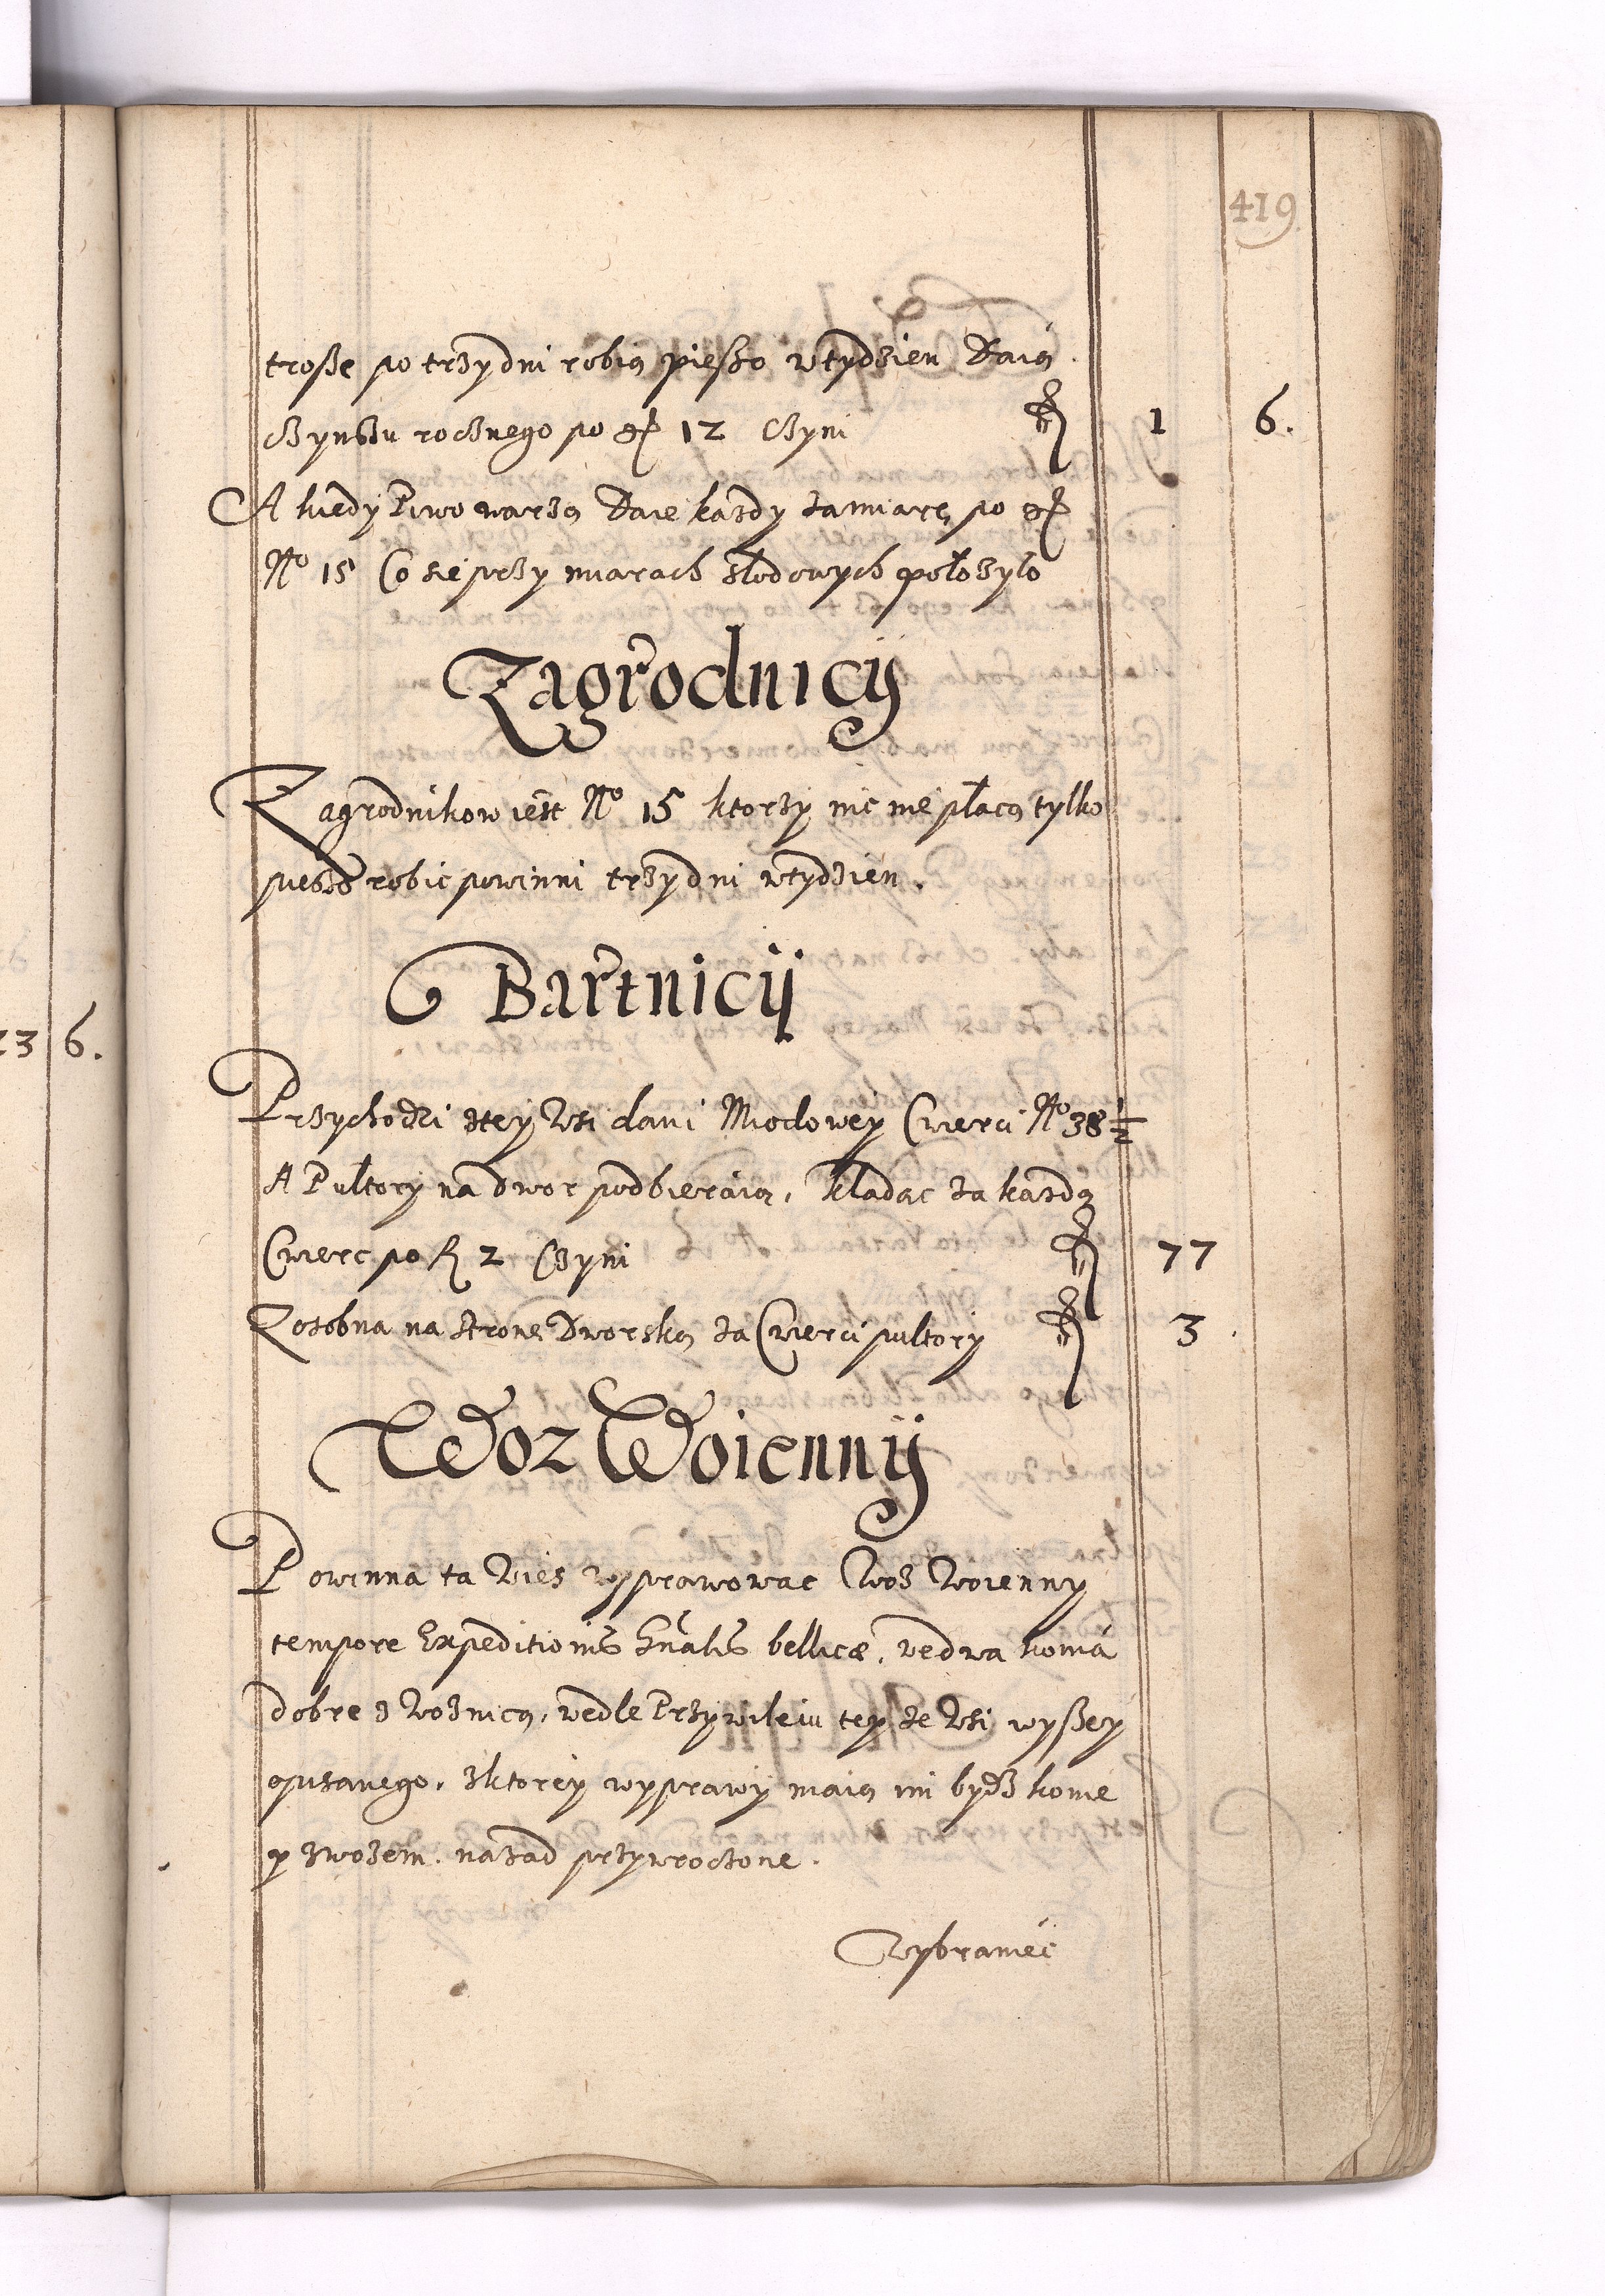 419
troße po trzy dni robią pießo wtydzien Daią
Czynszu rocznego po gr 12 Czyni fl 1 6.
A kiedy Piwo warzą Daie każdy zamiarę po gr
No 15 Co sie przy miarach słodowych położyło
Zagrodnicy
Zagrodnikow iest No 15 ktorzy nic nie płacą tylko
pieszo robic powinni trzy dni wtydzien.
Bartnicy
Przychodzi ztey Wsi dani Miodowey Cwierci No 38 1/2
A Pułtory na Dwor podbieraią, kladąc za kazdą
Cwierc po fl 2 Czyni fl 77
Zosobna na stronę Dworską za Cwierci pułtory fl 3
Woz Woienny
Powinna ta Wies wyprawowac Woz Woienny
tempore Expeditionis Gnalis bellicæ, wedwa konia
dobre z Woznicą, wedle Przywileiu teyze Wsi wyßey
opisanego, zktorey wyprawy maią im bydz konie
y zwozem nazad przywroczone.
Wybraniec
23 6.